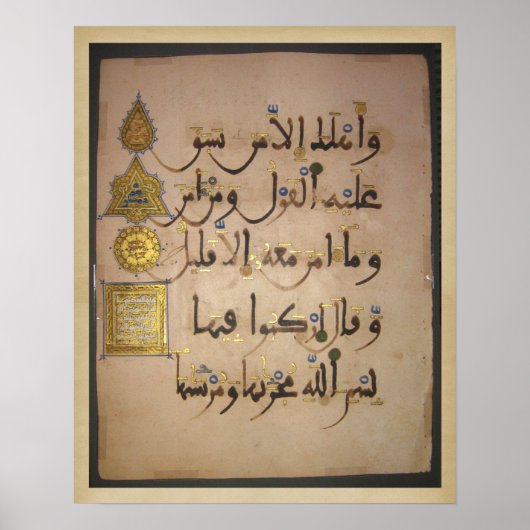 وَأَهْلَكَ إِلَّا مَن سَبَقَ
عَلَيْهِ الْقَوْلُ وَمَنْ ءَامَنَ
وَمَا ءَامَنَ مَعَهُ إِلَّا قَلِيلٌ
وَقَالَ ارْكَبُوا فِيهَا
بِسْمِ اللَّهِ مُجْرَىٰهَا وَمُرْسَىٰهَا